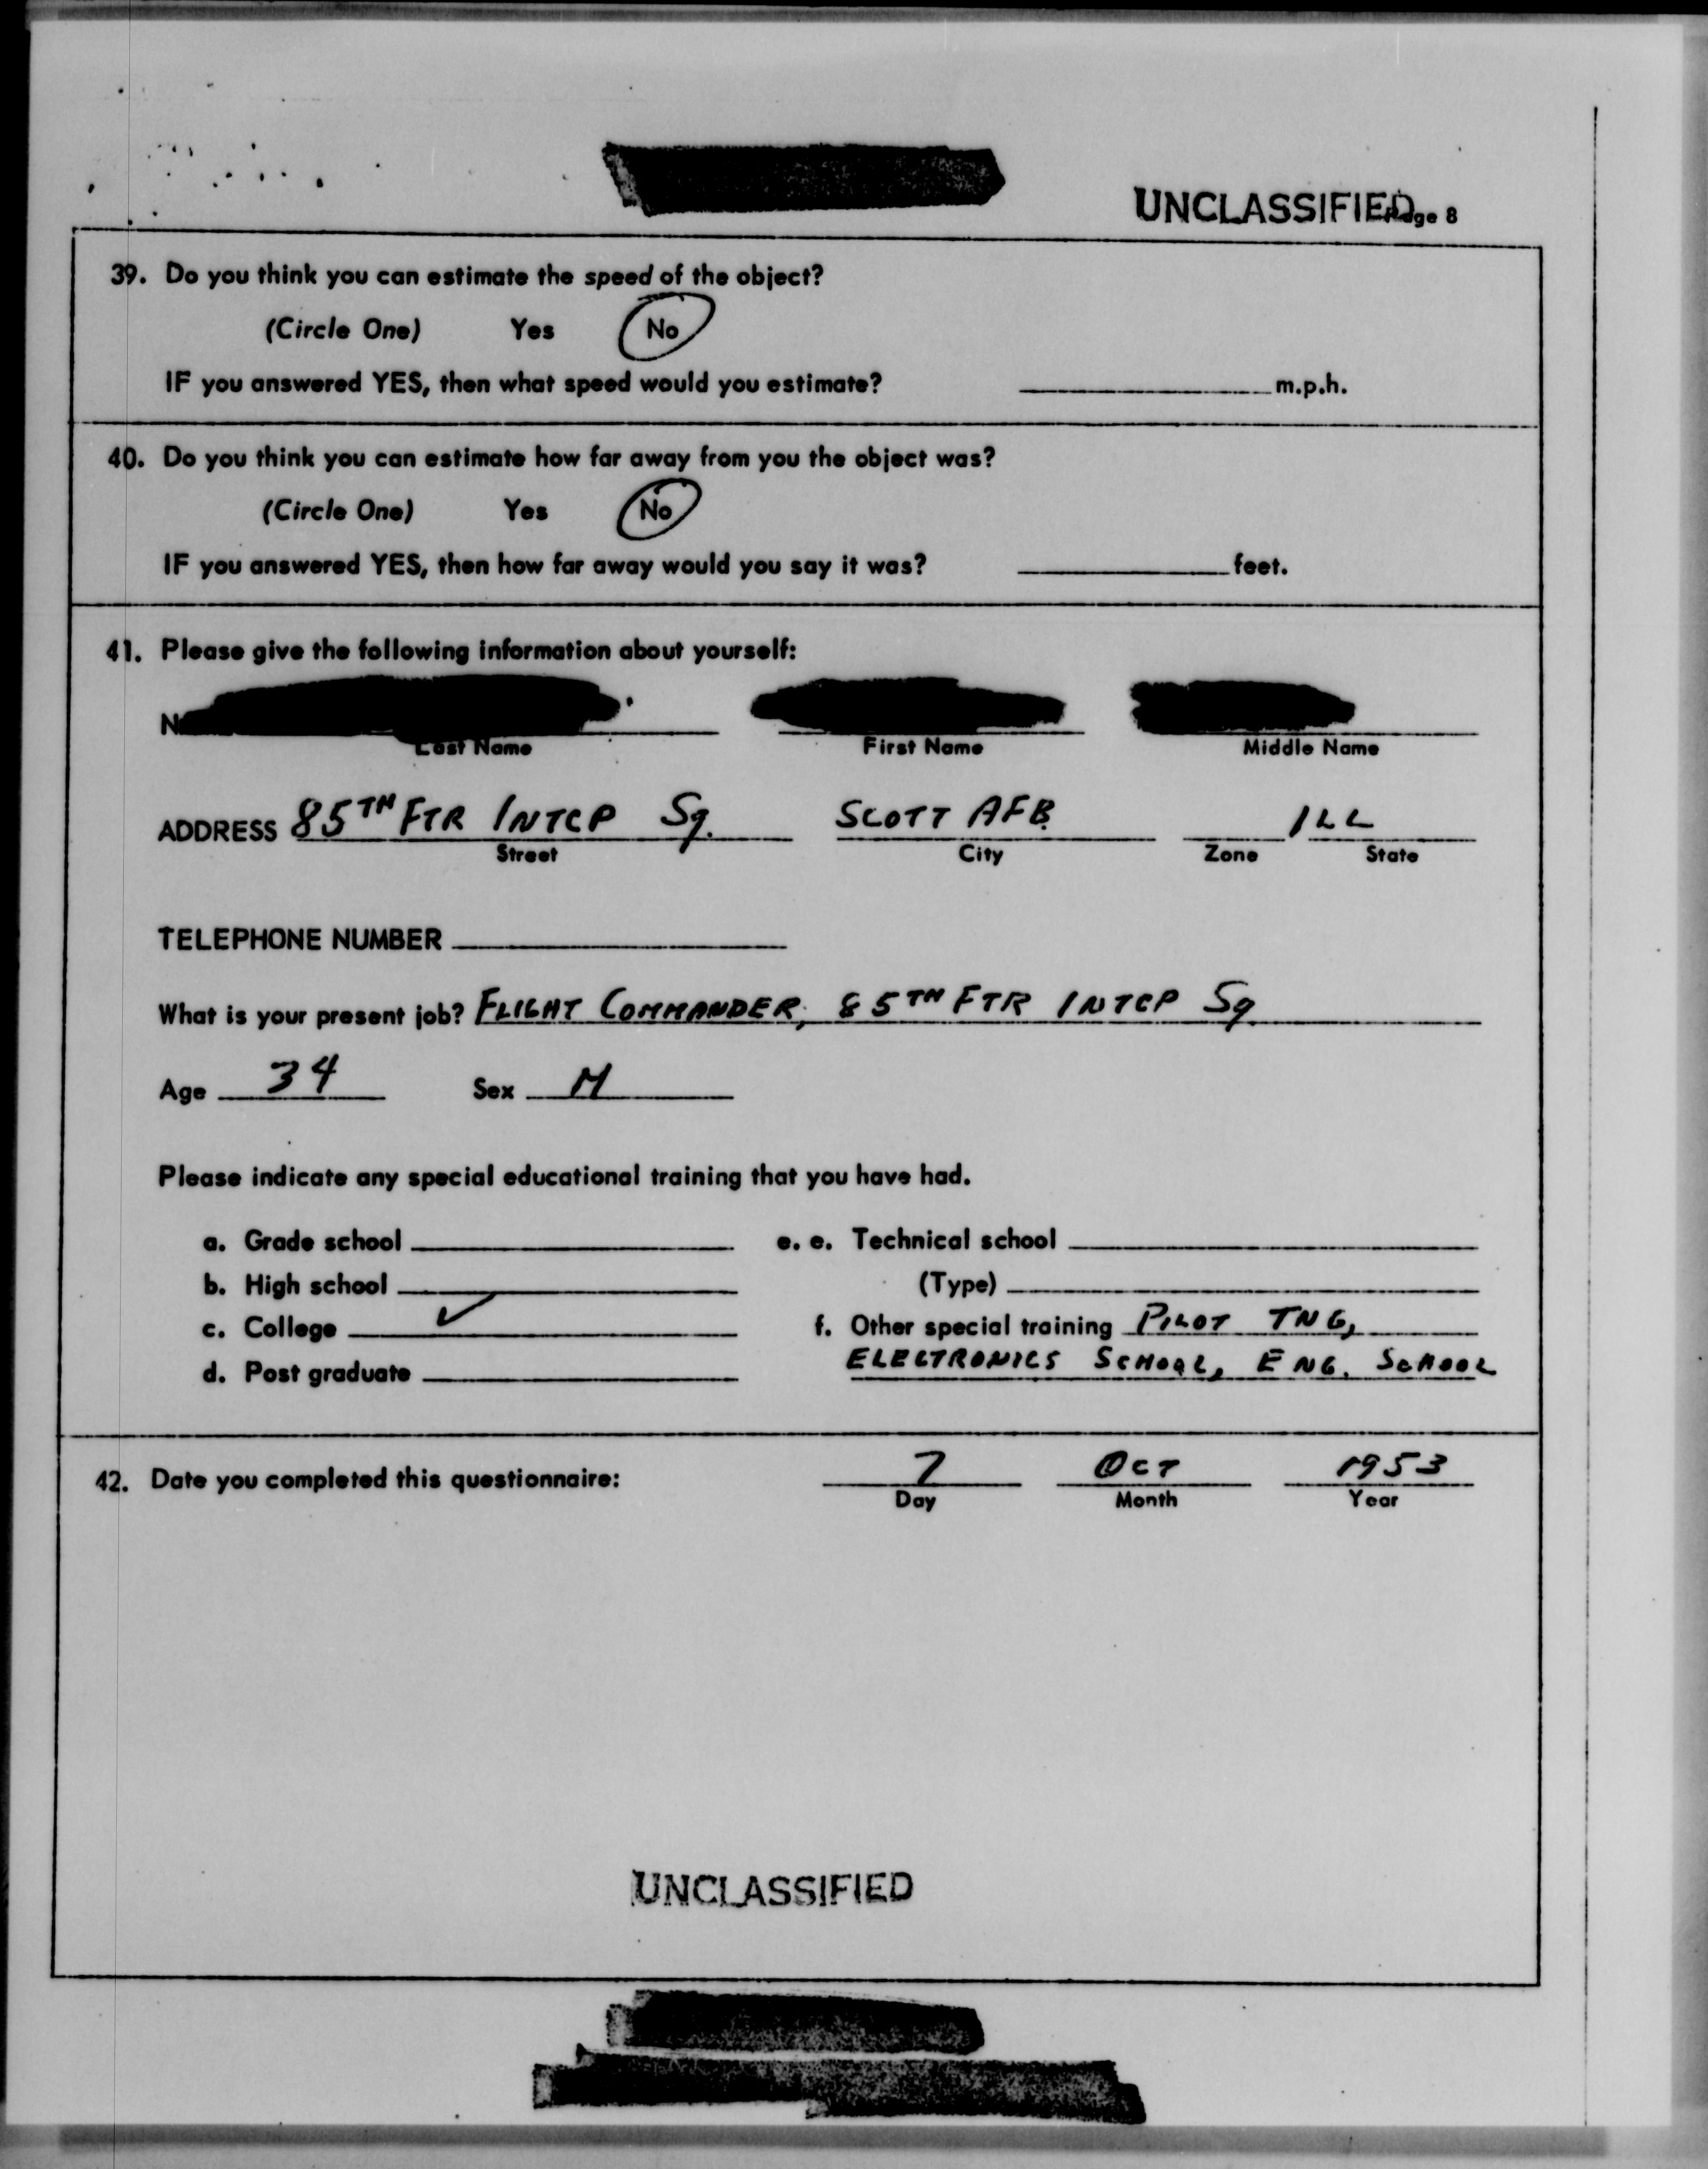 UNCLASSIFIED
Page 8
39. Do you think you can estimate the speed of the object?
(Circle One) Yes No
IF you answered YES, then what speed would you estimate? m.p.h.
40. Do you think you can estimate how far away from you the object was?
(Circle One) Yes No
IF you answered YES, then how far away would you say it was? feet.
41. Please give the following information about yourself:
Last Name First Name Middle Name
ADDRESS 85TH FTR INTCP Sq. SCOTT AFB ILL
Street City Zone State
TELEPHONE NUMBER
What is your present job? FLIGHT COMMANDER, 85TH FTR INTCP Sq
Age 34 Sex M
Please indicate any special educational training that you have had.
a. Grade school e. e. Technical school
b. High school (Type)
c. College ✓ f. Other special training PILOT TNG,
d. Post graduate ELECTRONICS SCHOOL, ENG. SCHOOL
42. Date you completed this questionnaire: 7 OCT 1953
Day Month Year
UNCLASSIFIED